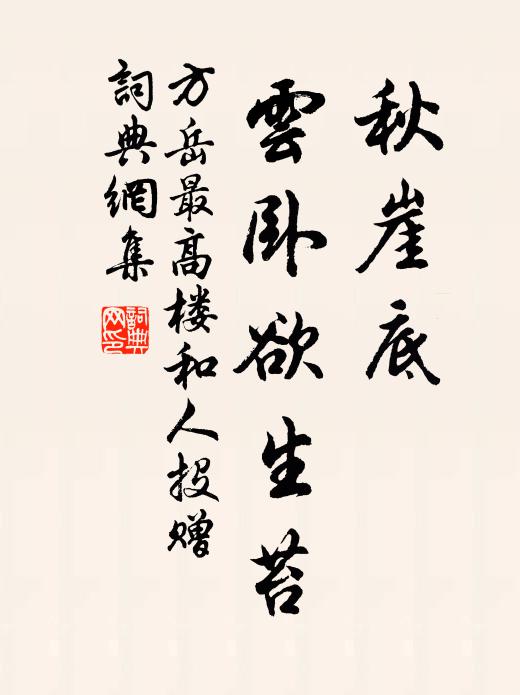 秋崖底
雲卧欲生苔
方岳最高楼和人投赠
詞典網集
詞典网印